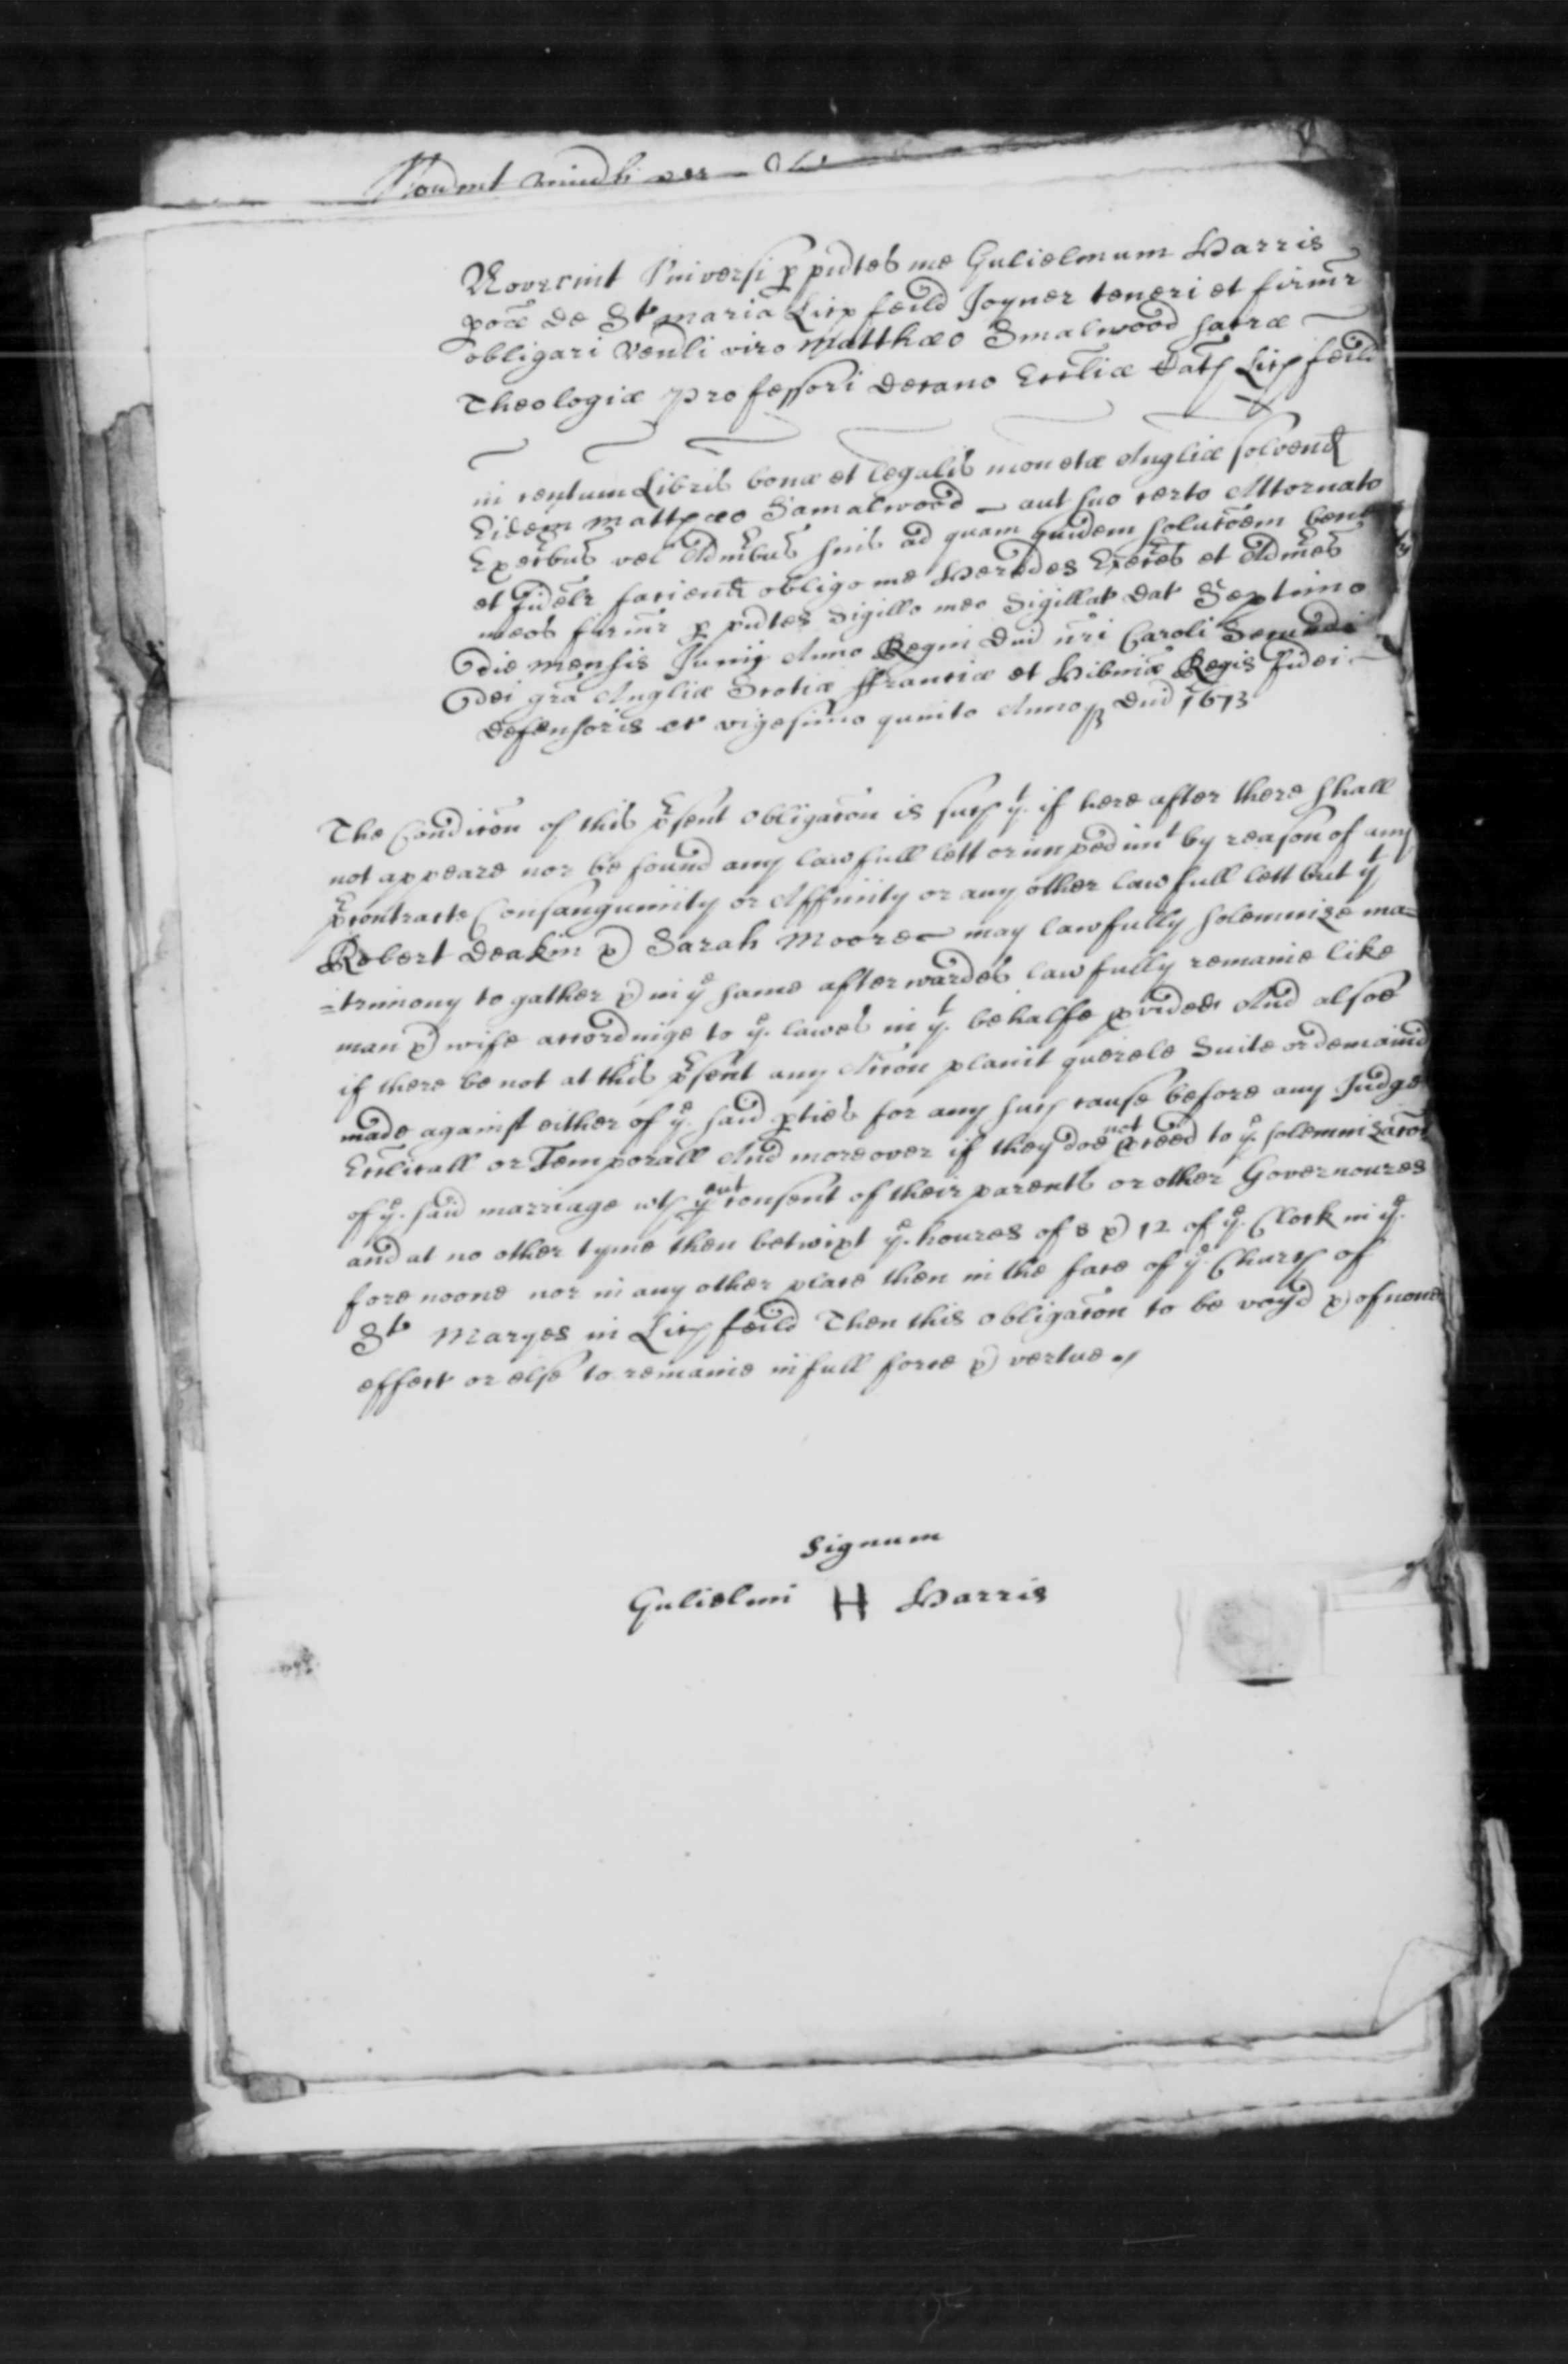 Noverint Universi p pntes me Gulielmum Harris
poce de St Maria Lichfeild Joyner teneri et firmr
obligari Venli viro Matthæo Smalwood sacræ
Theologiæ Professori Decano Ecclíæ Cath Lichfeild
in centum Libris bonæ et legalis monetæ Angliæ solvend
Eidem Matthæo Samalwood – aut suo certo Attornato
Execribus vel Admribus suis ad quam quidem solutoem bene
et fidelr faciend obligo me Heredes Execres et Admres
meos firmr p pntes Sigillo meo Sigillat Dat Septimo
die mensis Junij Anno Regni Dni nri Caroli Secundi
Dei gra Angliæ Scotiæ ffranciæ et Hibniæ Regis fidei –
Defensoris et vigesimo quinto Annoq Dni 1673
The Conditon of this psent obligaton is such yt if here after there shall
not appeare nor be found any lawfull lett or impedimt by reason of any
pcontract Consanguinity or Affinity or any other lawfull lett but yt
Robert Deakin & Sarah Moore – may lawfully solemnize ma=
=trimony to gather & in ye same afterwardes lawfully remaine like
man & wife accordinge to ye lawes in yt behalfe pvided And alsoe
if there be not at this psent any Action plaint querele Suite or demaund
made against either of ye said pties for any such cause before any Judge
Ecclicall or Temporall And moreover if they doe not pceed to ye solemnizaton
of ye said marriage wthout ye consent of their parents or other Governoures
and at no other tyme then betwixt ye houres of 8 & 12 of ye Clock in ye
forenoone nor in any other place then in the face of ye Church of
St Maryes in Lichfeild Then this obligaton to be voyd & of none
effect or else to remaine in full force & vertue
Signum
Gulielmi H Harris